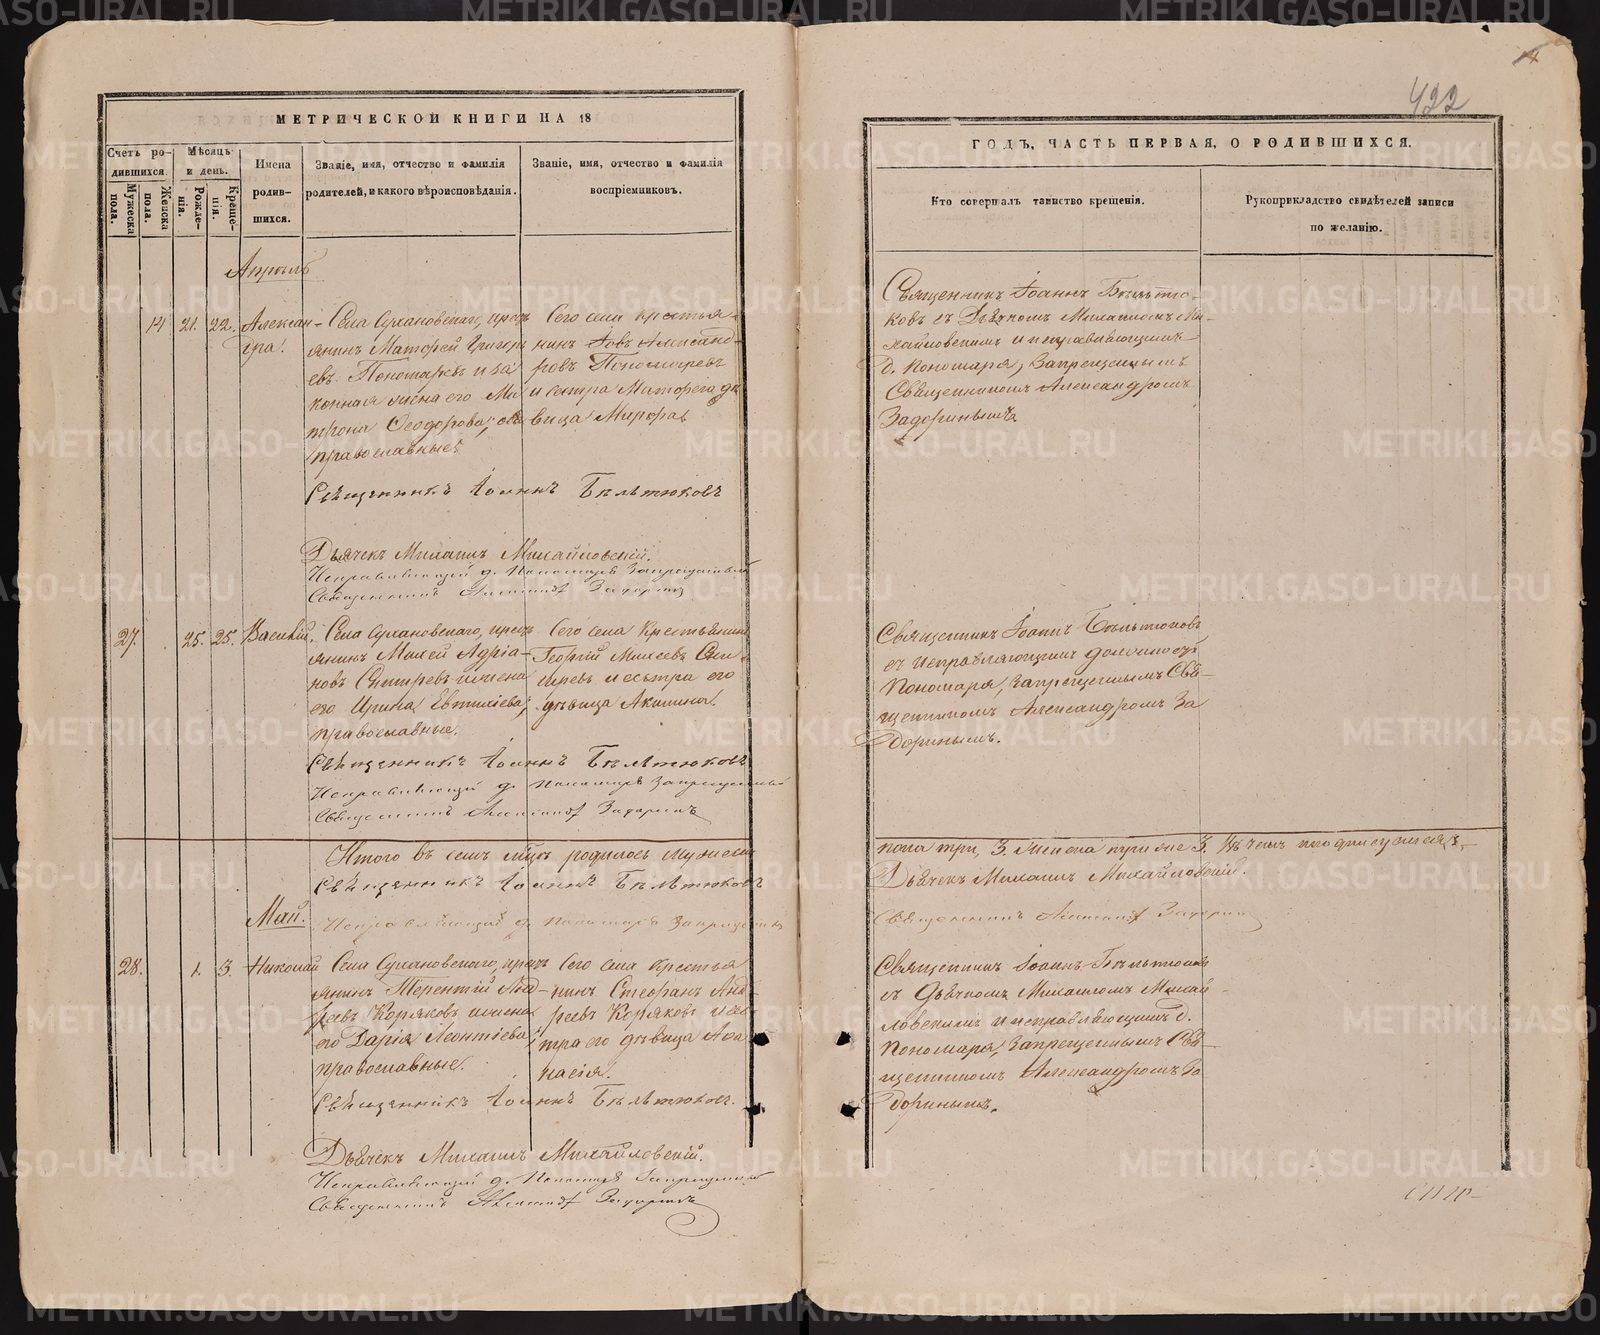 МЕТРИЧЕСКОЙ КНИГИ НА 18
Счетъ родившихся.
Мужеска пола.
Женска пола.
Мѣсяцъ и день.
Рожденія.
Крещенія.
Имена родившихся.
Званіе, имя, отчество и фамилія родителей, и какого вѣроисповѣданія.
Званіе, имя, отчество и фамилія воспріемниковъ.
Апрѣль
14 21. 22. Александра.
Села Сухановскаго, крест
янинъ Матѳей Григорь
евъ Пономаревъ и за
конная жена его Ма
трона Ѳеодорова; оба
православные.
Сего села крестья
нинъ Іовъ Александ
ровъ Пономаревъ
и сестра Матѳея дѣ
вица Марѳа.
Священникъ Іоаннъ Бѣлѣтюковъ
Дьячекъ Михаилъ Михайловскій.
Исправляющій д. Пономаря Запрещенный
Священникъ Александръ Задоринъ
27. 25. 25. Василій.
Села Сухановскаго, крест
янинъ Мокей Адріа
новъ и жена
его Ирина Евтихіева;
православные.
Сего села крестьянинъ
Георгій
и сестра его
дѣвица Акилина.
Священникъ Іоаннъ Бѣлѣтюковъ
Исправляющій д. Пономаря Запрещенный
Священникъ Александръ Задоринъ
Итого въ семъ мѣсяцѣ родилось мужеска
Священникъ Іоаннъ Бѣлѣтюковъ
Май.
Исправляющій д. Пономаря Запрещенный
28. 1. 3. Николай
Села Сухановскаго, крест
янинъ Терентій Анд
реевъ Коряковъ и жена
его Дарія Леонтіева;
православные.
Сего села крестья
нинъ Стефанъ Анд
реевъ Коряковъ и сес
тра его дѣвица Аѳа
насія.
Священникъ Іоаннъ Бѣлѣтюковъ.
Дьячекъ Михаилъ Михайловскій.
Исправляющій д. Пономаря Запрещенный
Священникъ Александръ Задоринъ
422
ГОДЪ, ЧАСТЬ ПЕРВАЯ, О РОДИВШИХСЯ.
Кто совершалъ таинство крещенія.
Рукоприкладство свидѣтелей записи по желанію.
Священникъ Іоаннъ Бѣлѣтю
ковъ съ Дьячкомъ Михаиломъ Ми
хайловскимъ и исправляющимъ
д. Пономаря, Запрещеннымъ
Священникомъ Александромъ
Задоринымъ.
Священникъ Іоаннъ Бѣлѣтюковъ
съ исправляющимъ должность
Пономаря, Запрещеннымъ Свя
щенникомъ Александромъ За
доринымъ.
пола три, 3. женска три же 3. Въ чемъ и подписуемся,
Дьячекъ Михаилъ Михайловскій.
Священникъ Александръ Задоринъ
Священникъ Іоаннъ Бѣлѣтюковъ
съ Дьячкомъ Михаиломъ Михай
ловскимъ и исправляющимъ д.
Пономаря, Запрещеннымъ Свя
щенникомъ Александромъ За
доринымъ.
METRIKI.GASO-URAL.RU